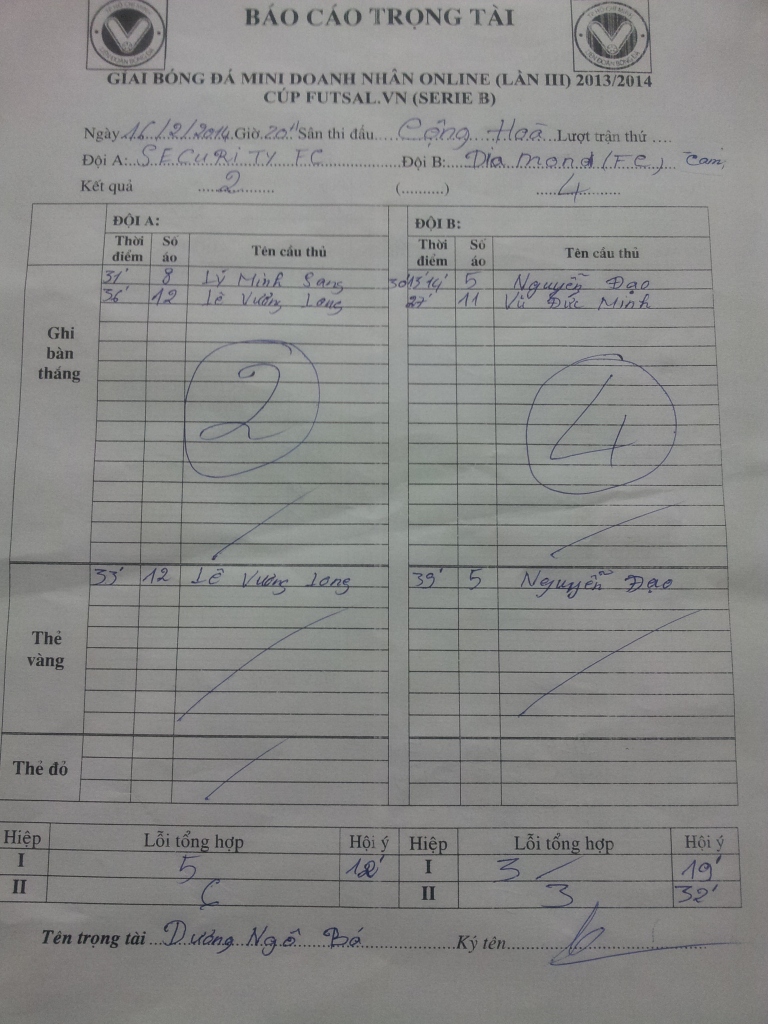 BÁO CÁO TRỌNG TÀI
GIẢI BÓNG ĐÁ MINI DOANH NHÂN ONLINE (LẦN III) 2013/2014
CÚP FUTSAL.VN (SERIE B)
Ngày 16/2/2014 Giờ 20H Sân thi đấu Cộng Hoà Lượt trận thứ ....
Đội A: SECURITY FC Đội B: Diamond (FC) Cam
Kết quả 2 (..........) 4
ĐỘI A: ĐỘI B:
Thời điểm Số áo Tên cầu thủ Thời điểm Số áo Tên cầu thủ
Ghi bàn thắng
31' 8 Lý Minh Sang 5 Nguyễn Đạo
36' 12 Lê Vương Long 27' 11 Vũ Đức Minh
2 4
Thẻ vàng
33' 12 Lê Vương Long 39' 5 Nguyễn Đạo
Thẻ đỏ
Hiệp Lỗi tổng hợp Hội ý Hiệp Lỗi tổng hợp Hội ý
I 5 12' I 3 19'
II II 3 32'
Tên trọng tài Dương Ngô Bá Ký tên